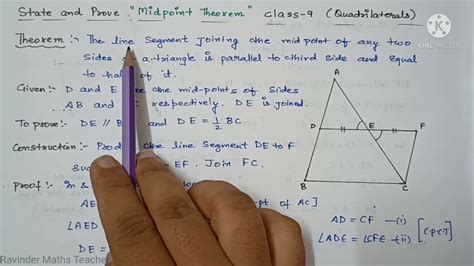 State and Prove "Midpoint Theorem" Class-9 (Quadrilaterals)
Theorem :- The line segment joining the mid point of any two
sides of a triangle is parallel to third side and equal
to half of it.
Given :- D and E are the mid-points of sides
AB and respectively. DE is joined.
To prove :- DE // B and DE = 1/2 BC
Construction :- Prod the line segment DE to F
suc EF. Join FC.
Proof :- In
AE pt of AC]
∠AED
DE =
AD = CF —(i)
∠ADE = ∠CFE —(ii)
[CPCT]
A
D
E
F
B
C
KINEMASTER
Ravinder Maths Teacher